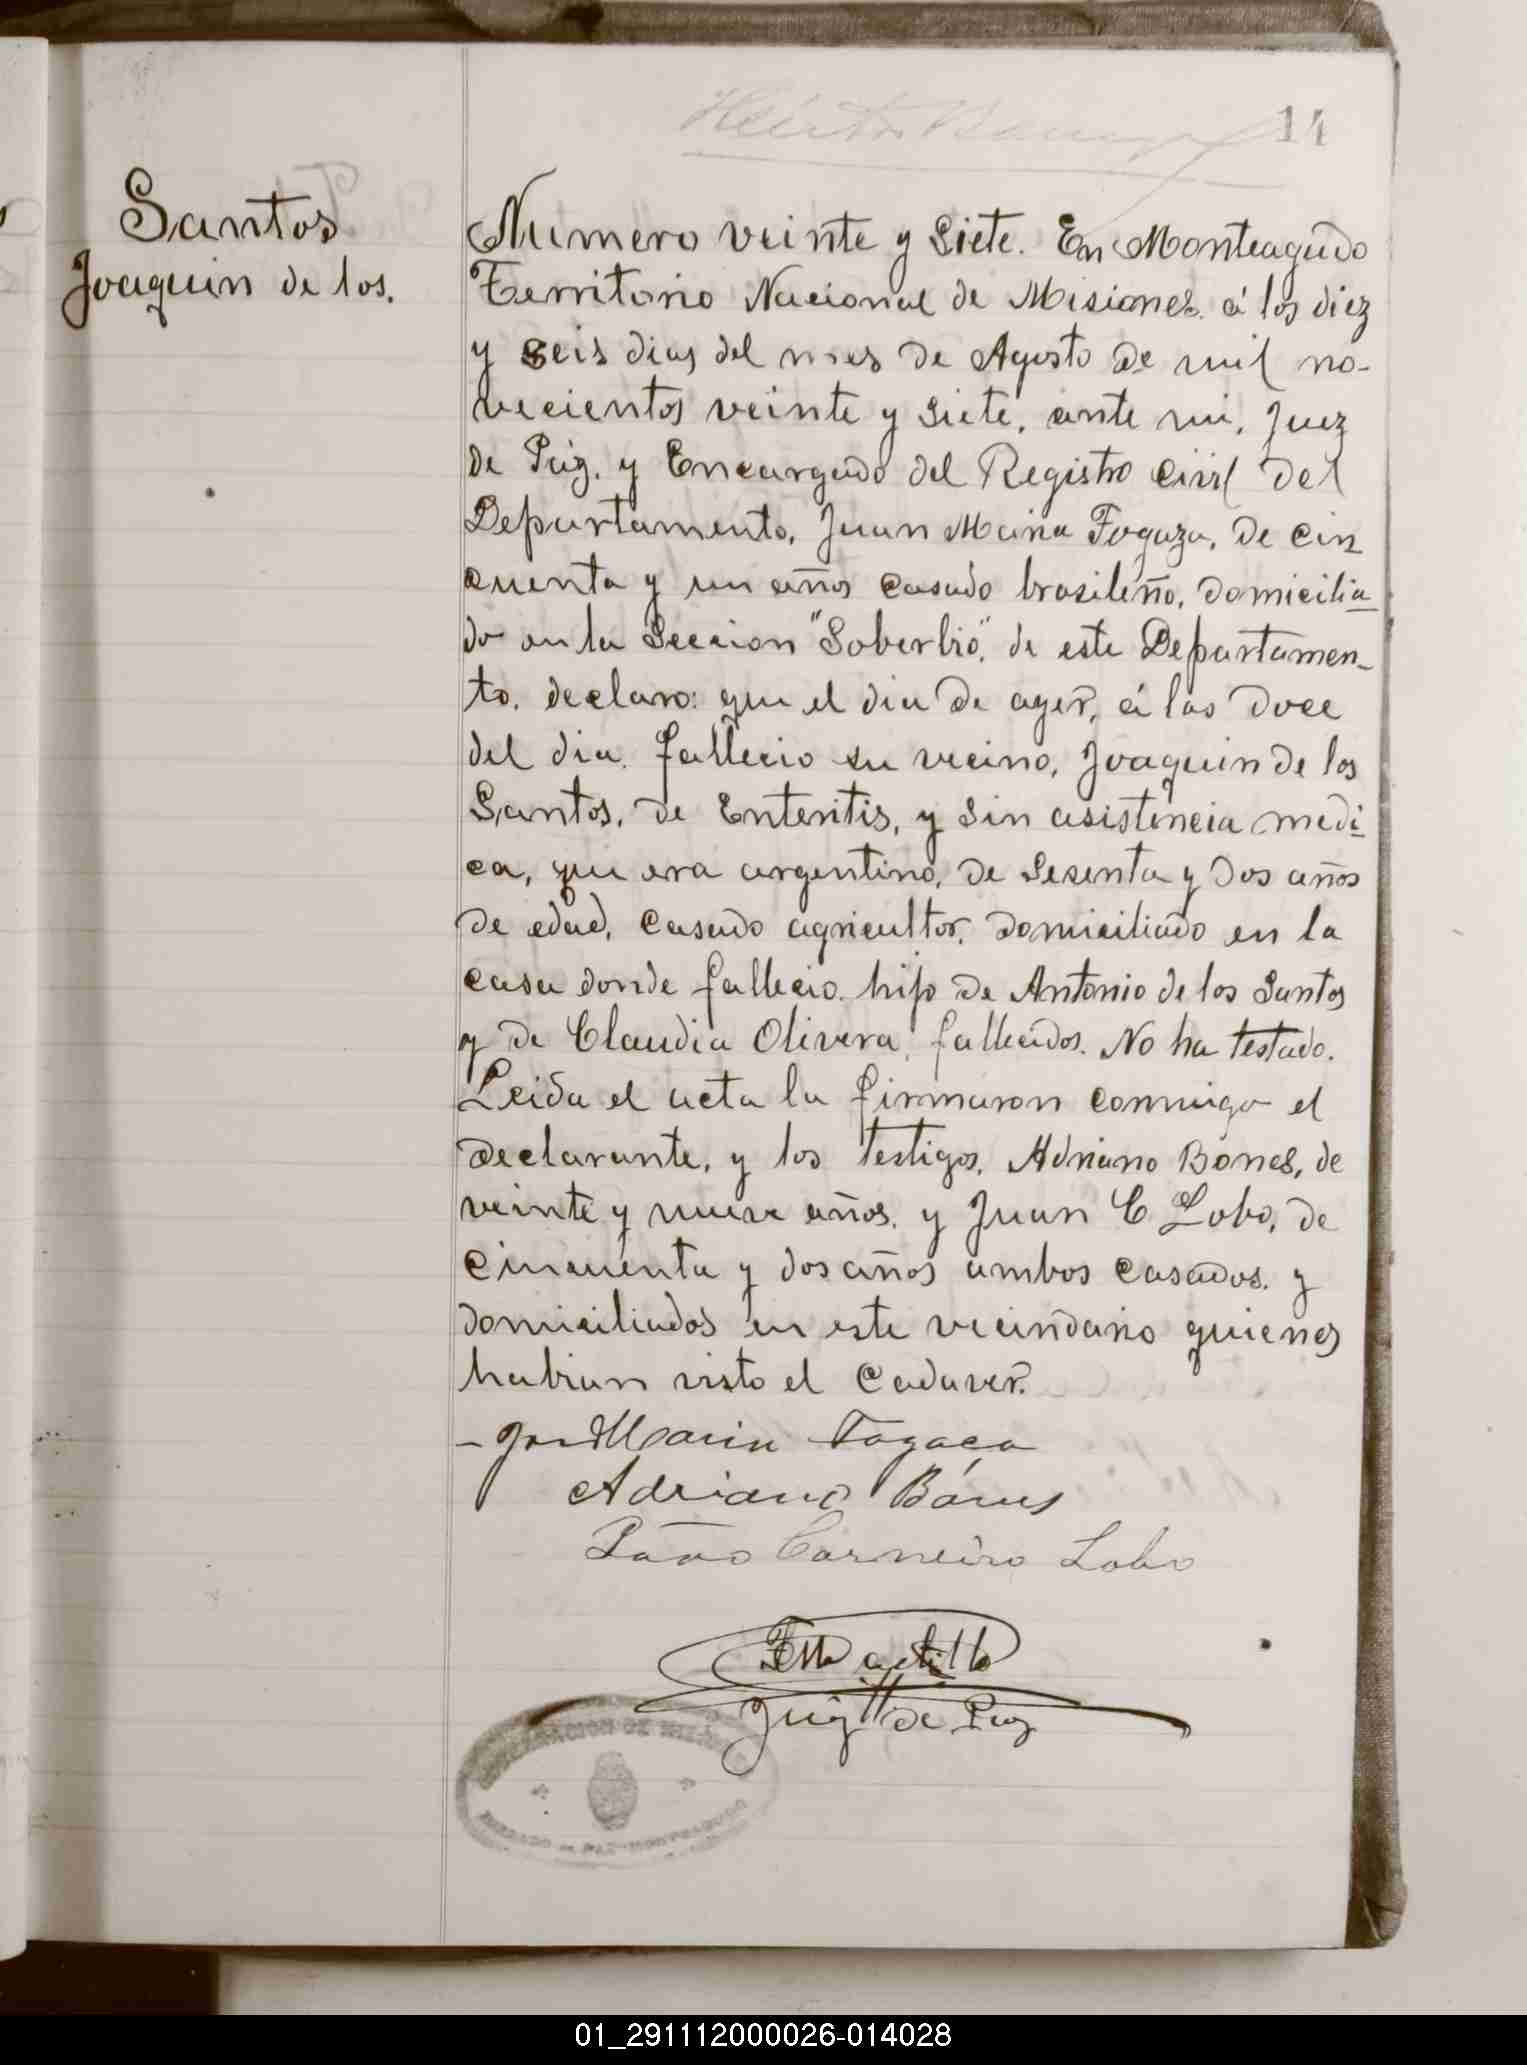 14
Santos
Joaquin de los.
Numero veinte y siete. En Monteagudo
Territorio Nacional de Misiones. á los diez
y seis dias del mes de Agosto de mil no-
vecientos veinte y siete, ante mi, Juez
de Paz. y Encargado del Registro Civil del
Departamento, Juan Maria Fogaza, de cin
cuenta y un años casado brasileño, domicilia
do en la Seccion "Soberbio", de este Departamen-
to, declaro: que el dia de ayer, á las doce
del dia. fallecio su vecino, Joaquin de los
Santos, de Enteritis, y sin asistencia medi
ca, que era argentino, de sesenta y dos años
de edad, casado agricultor, domiciliado en la
casa donde fallecio. hijo de Antonio de los Santos
y de Claudia Olivera, fallecidos. No ha testado.
Leida el acta la firmaron conmigo el
declarante, y los testigos, Adriano Bones, de
veinte y nueve años. y Juan C. Lobo, de
cincuenta y dos años ambos casados. y
domiciliados en este vecindario quienes
habian visto el cadaver.
Maria Fagaca
Adriano
Carneiro Lobo
Castillo
Juez de Paz
JUZGADO DE PAZ MONTEAGUDO
01_291112000026-014028